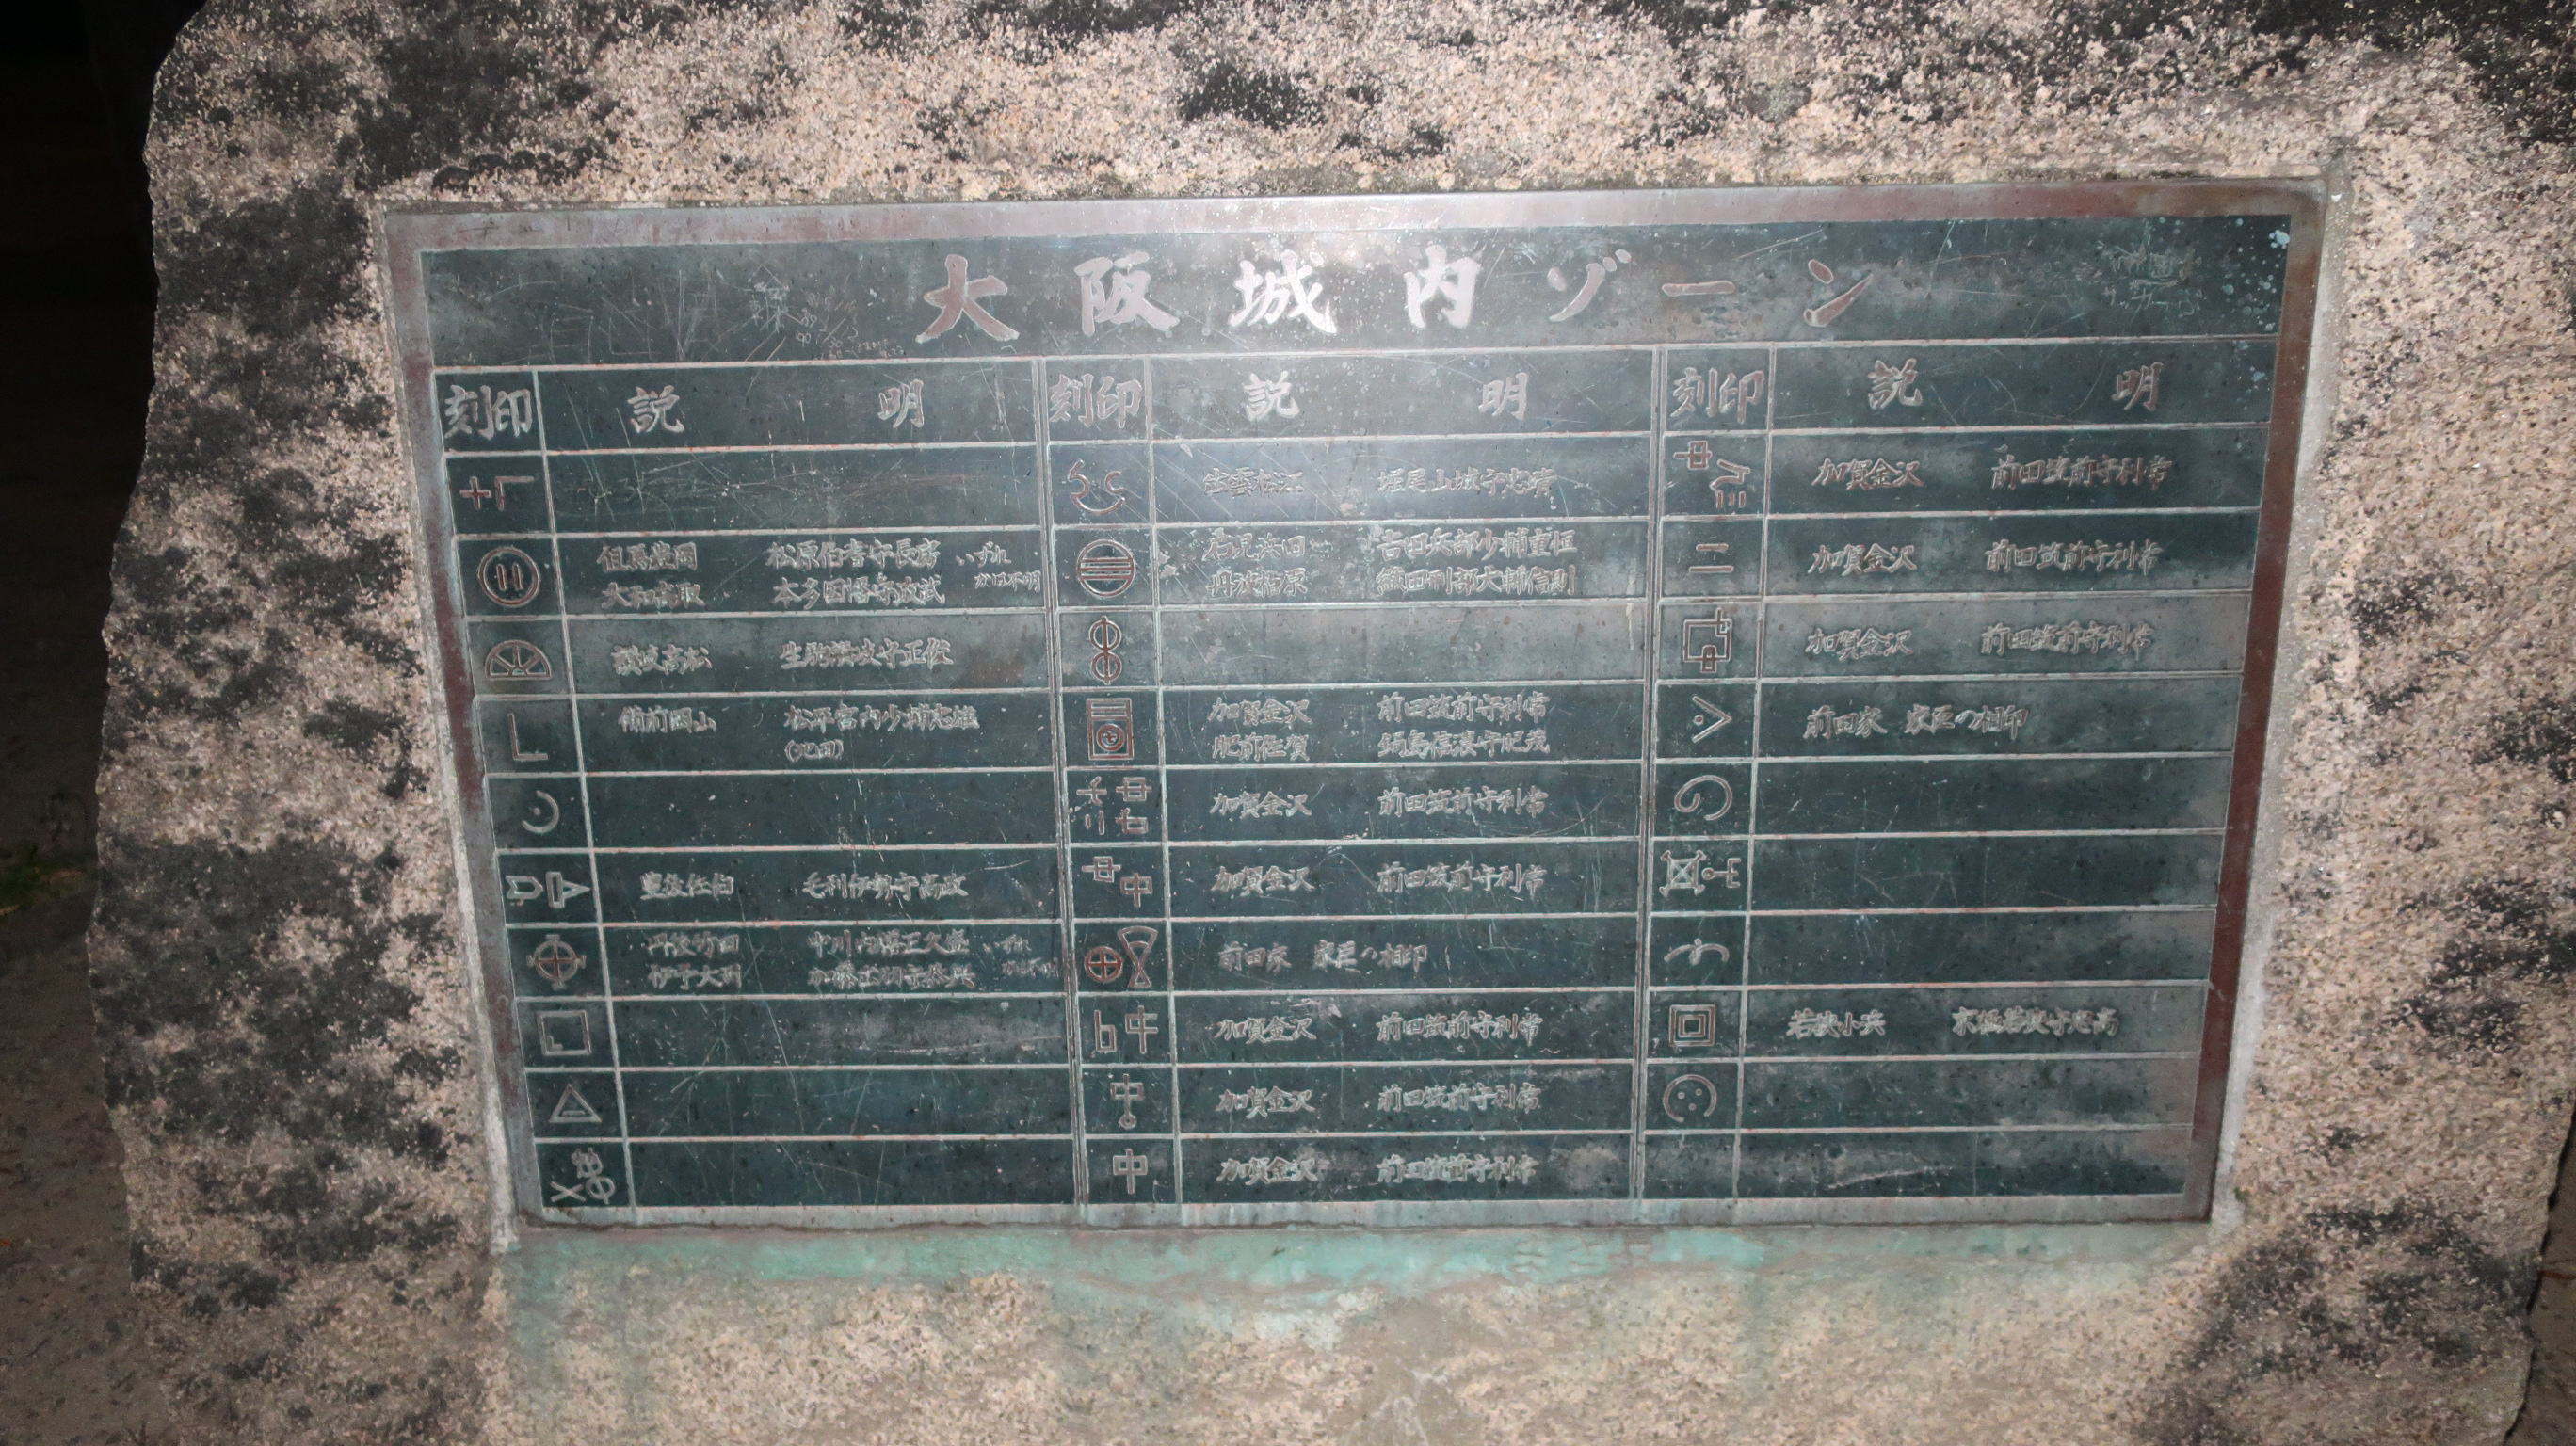 大阪城内ゾーン
刻印 説明 刻印 説明 刻印 説明
出雲松江 堀尾山城守忠晴
加賀金沢 前田筑前守利常
但馬豊岡 松原伯耆守長富 いずれ
大和高取 本多因幡守政武 かは不明
石見浜田 古田兵部少輔重恒
丹波柏原 織田刑部大輔信則
二 加賀金沢 前田筑前守利常
讃岐高松 生駒讃岐守正俊
加賀金沢 前田筑前守利常
備前岡山 松平宮内少輔忠雄
(池田)
加賀金沢 前田筑前守利常
肥前佐賀 鍋島信濃守
前田家 家臣の相印
加賀金沢 前田筑前守利常
豊後佐伯 毛利伊勢守高政
加賀金沢 前田筑前守利常
竹田 中川内膳正久盛 いずれ
伊予大洲 加藤出羽守泰興
前田家 家臣の相印
加賀金沢 前田筑前守利常
若狭小浜 京極若狭守忠高
中 加賀金沢 前田筑前守利常
中 加賀金沢 前田筑前守利常